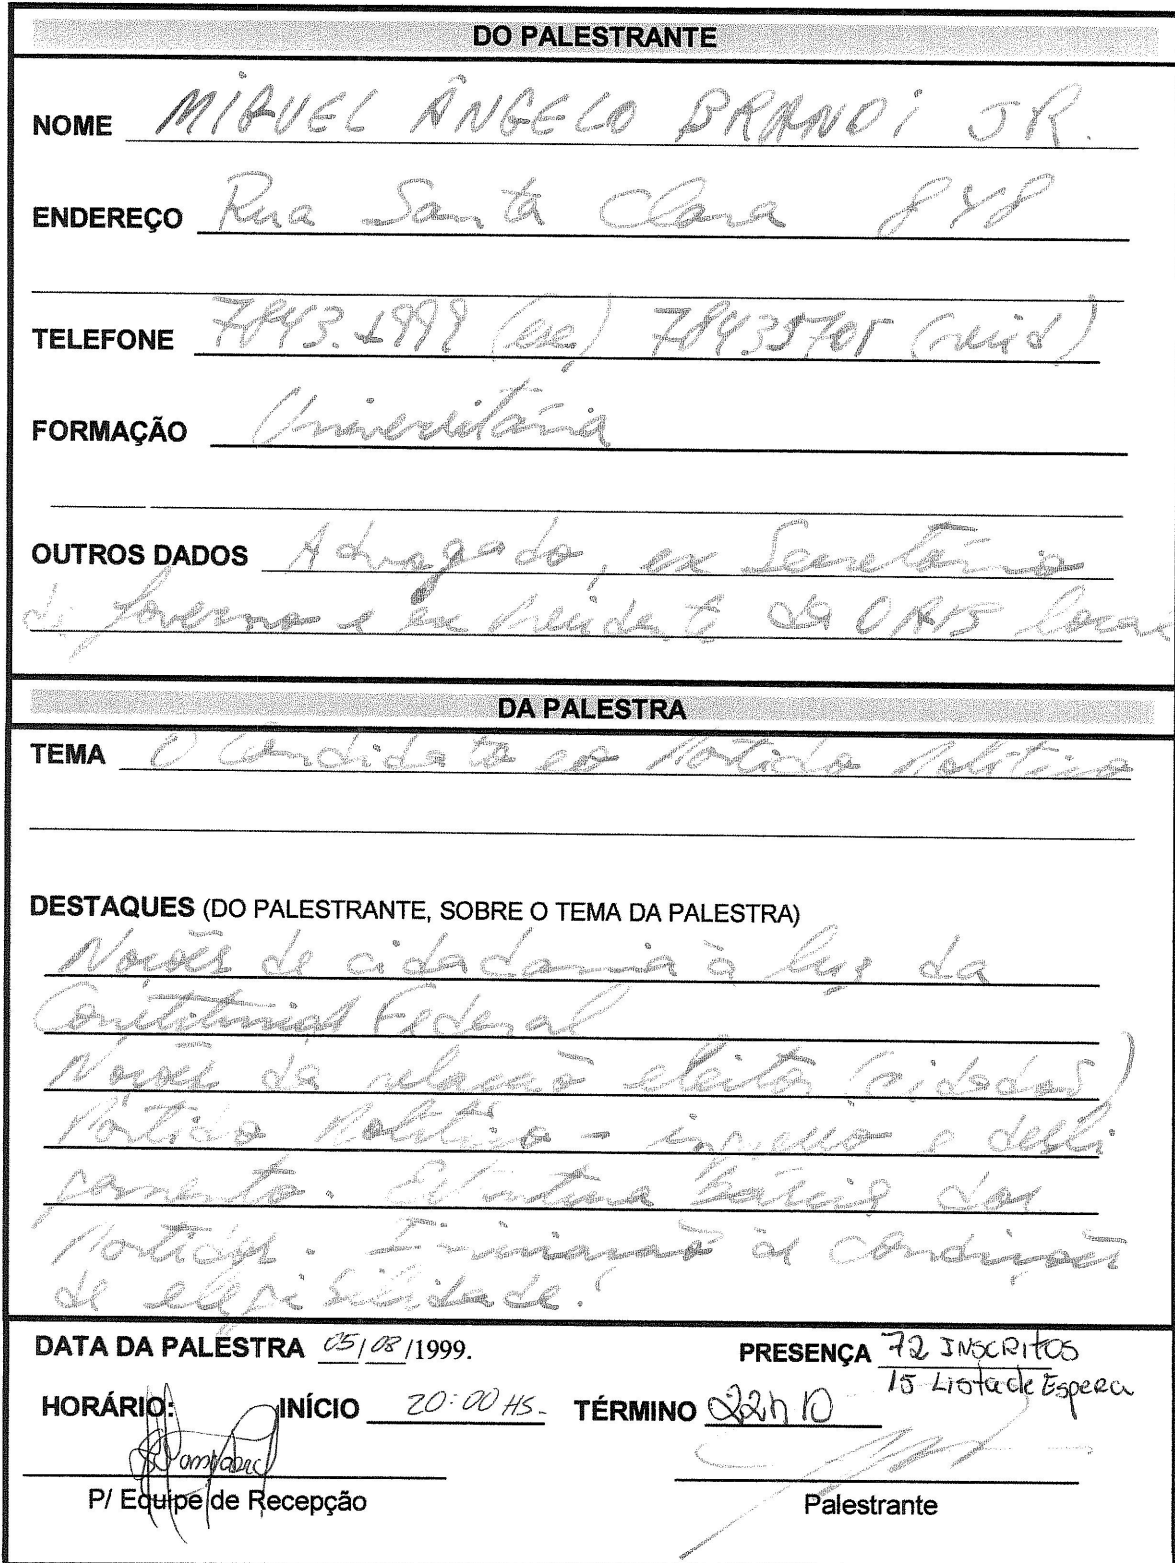 DO PALESTRANTE
NOME MIGUEL ÂNGELO BRANDI JR.
ENDEREÇO Rua Santa Clara 848
TELEFONE 7843.1999 (esc) 78435705 (resid)
FORMAÇÃO Universitária
OUTROS DADOS Advogado, ex Secretário
de Governo e ex Presidente da OAB local
DA PALESTRA
TEMA O Candidato e o Partido Político
DESTAQUES (DO PALESTRANTE, SOBRE O TEMA DA PALESTRA)
Noções de cidadania à luz da
Constituição Federal
Noções da relação eleitor (cidadão)
Partido Político - ingresso e desli
gamento. Estrutura básica dos
Partidos. Iniciação às condições
de elegibilidade.
DATA DA PALESTRA 05/08/1999. PRESENÇA 72 INSCRITOS
15 Lista de Espera
HORÁRIO: INÍCIO 20:00 HS. TÉRMINO 22h10
P/ Equipe de Recepção Palestrante